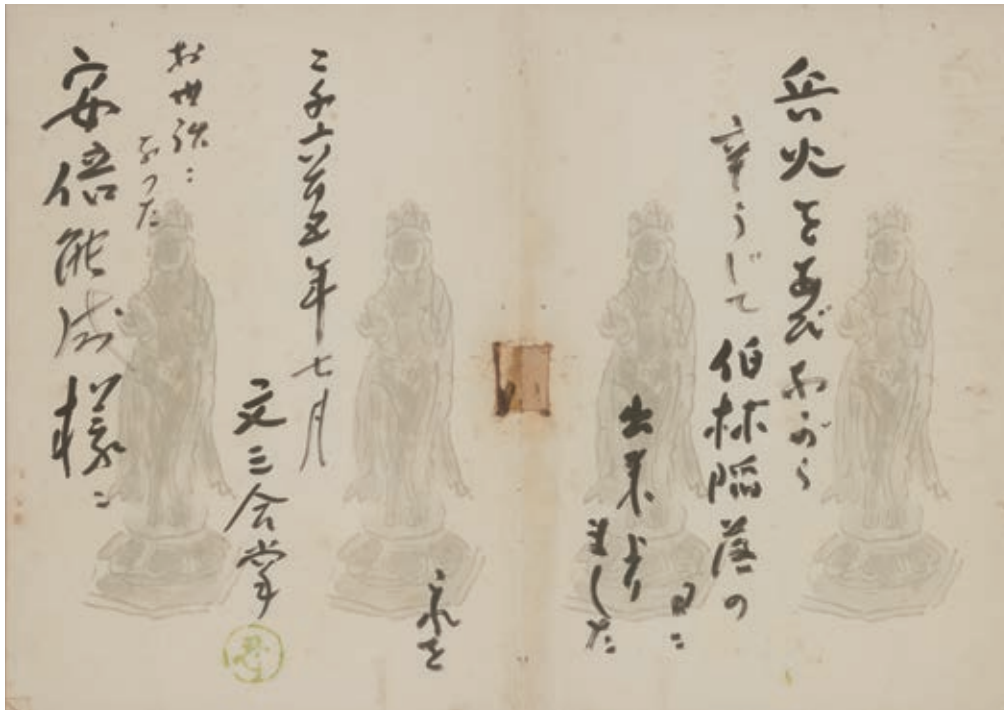 兵火をあびながら
辛うじて伯林陥落の
日に
出来上り
ました
これを
二千六百五年七月
文三会堂
お世話に
なつた
安倍能成様に